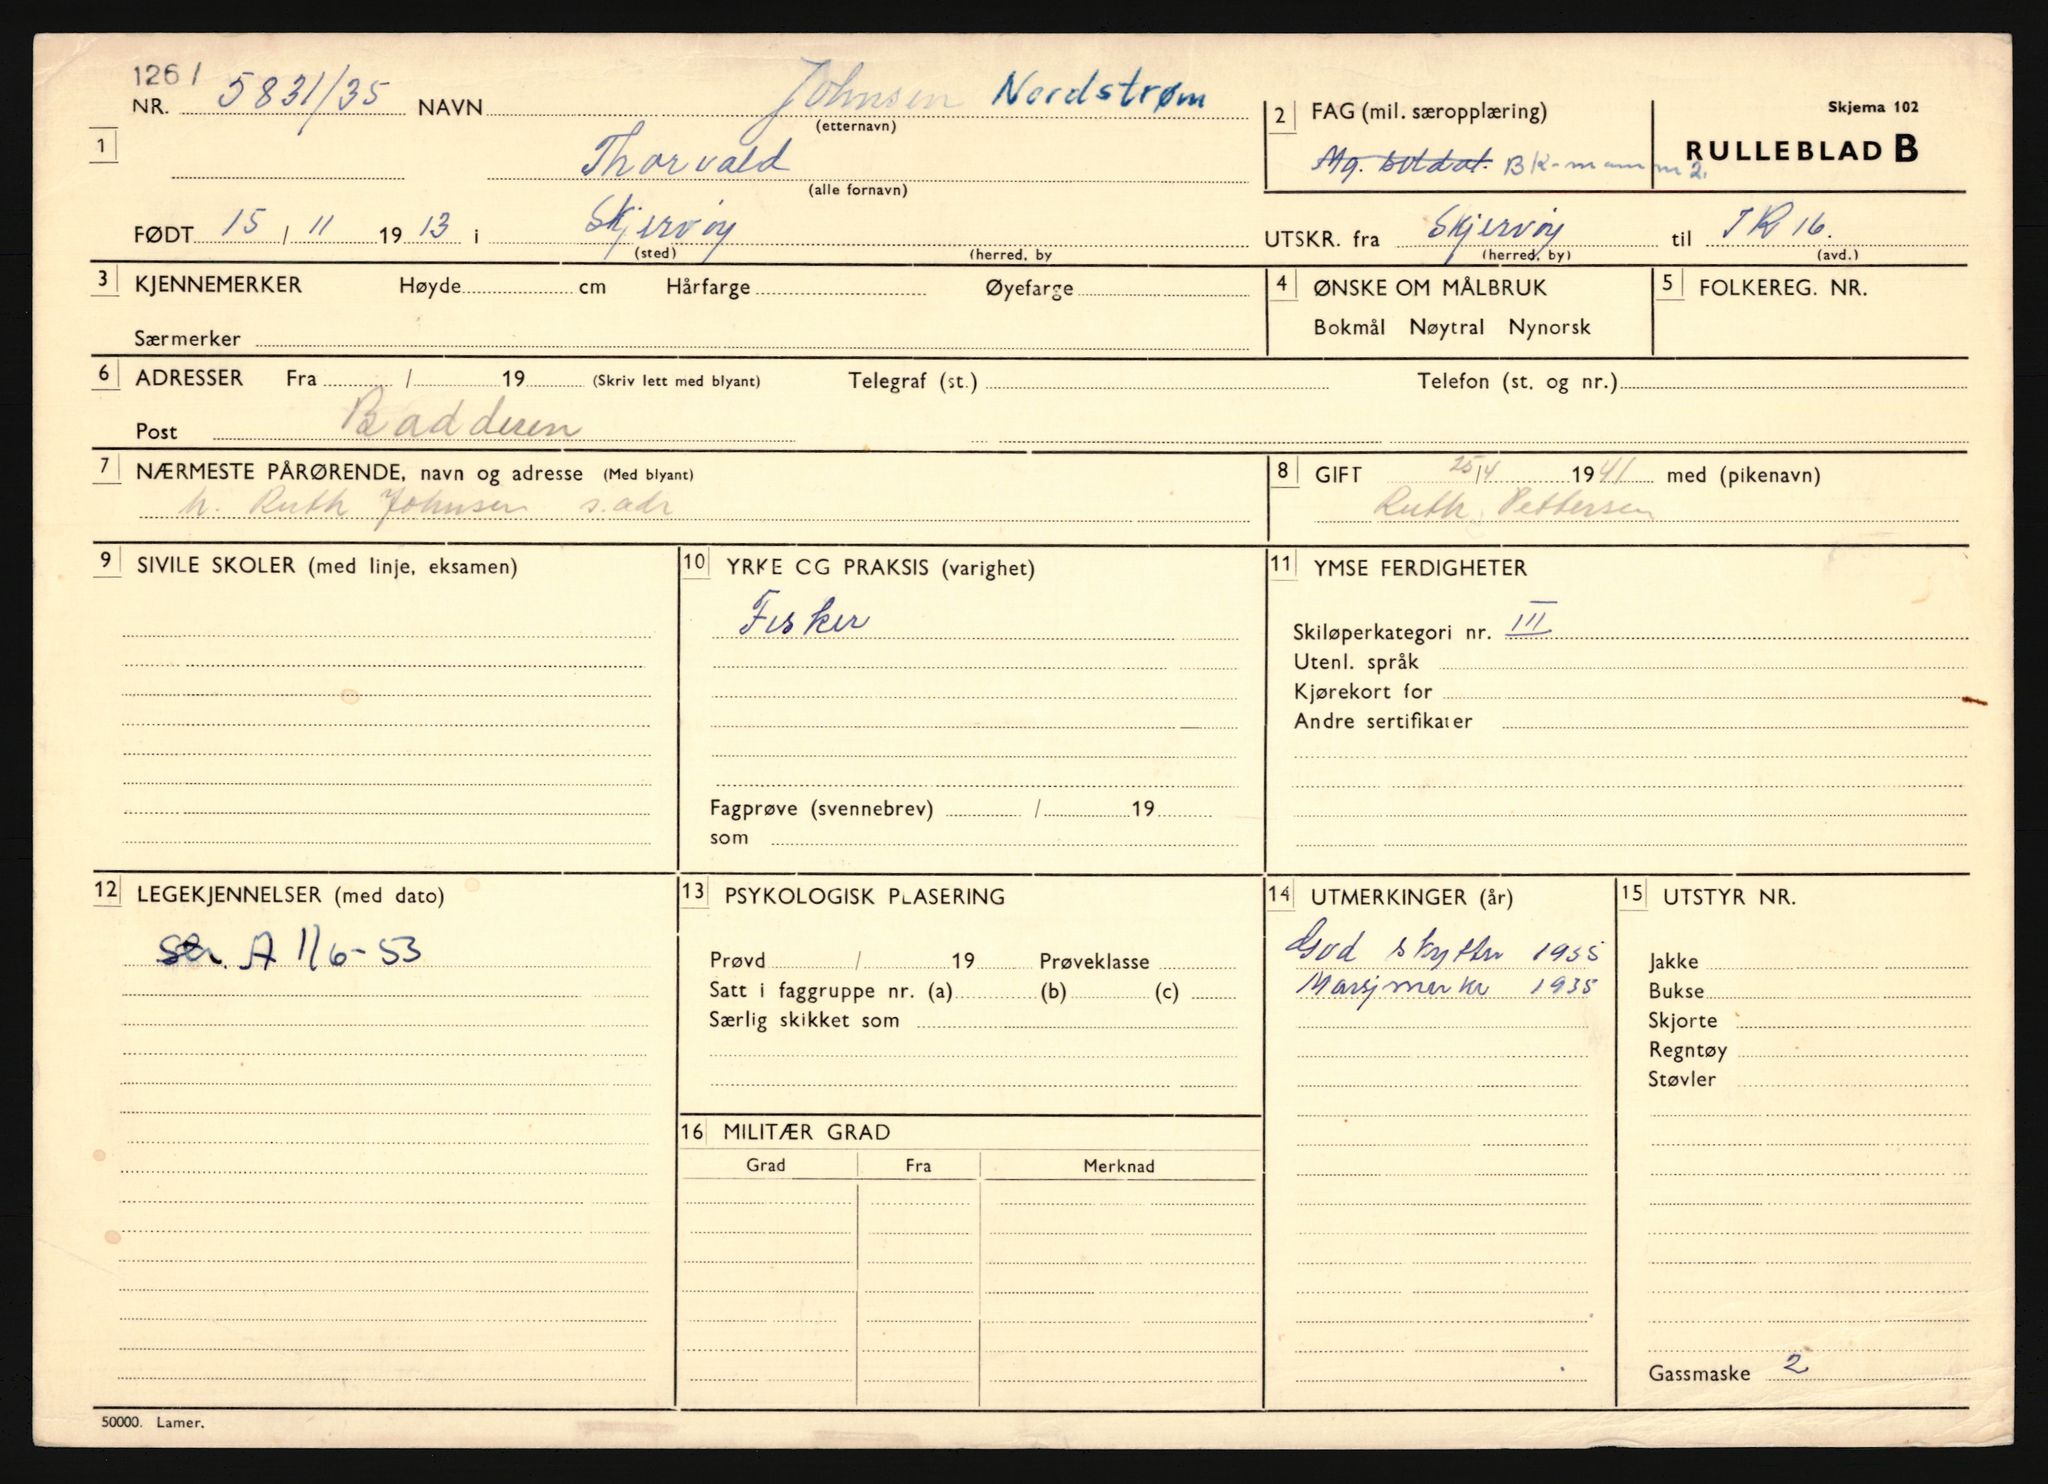 1261
NR. 5831/35 NAVN Johnsen Nordstrøm
(etternavn)
1 Thorvald
(alle fornavn)
FØDT 15 / 11 1913 i Skjervøy
(sted) (herred, by
2 FAG (mil. særopplæring)
Mg. soldat. BK-mann m2.
Skjema 102
RULLEBLAD B
UTSKR. fra Skjervøy til IR 16.
(herred, by) (avd.)
3 KJENNEMERKER Høyde cm Hårfarge Øyefarge
Særmerker
4 ØNSKE OM MÅLBRUK
Bokmål Nøytral Nynorsk
5 FOLKEREG. NR.
6 ADRESSER Fra / 19 (Skriv lett med blyant) Telegraf (st.) Telefon (st. og nr.)
Post Badderen
7 NÆRMESTE PÅRØRENDE, navn og adresse (Med blyant)
h. Ruth Johnsen s. adr
8 GIFT 25/4 1941 med (pikenavn)
Ruth Pettersen
9 SIVILE SKOLER (med linje, eksamen)
10 YRKE CG PRAKSIS (varighet)
Fisker
Fagprøve (svennebrev) / 19
som
11 YMSE FERDIGHETER
Skiløperkategori nr. III
Utenl. språk
Kjørekort for
Andre sertifikater
12 LEGEKJENNELSER (med dato)
A 1/6-53
13 PSYKOLOGISK PLASERING
Prøvd / 19 Prøveklasse
Satt i faggruppe nr. (a) (b) (c)
Særlig skikket som
14 UTMERKINGER (år)
God skytter 1935
Marsjmerke 1935
15 UTSTYR NR.
Jakke
Bukse
Skjorte
Regntøy
Støvler
Gassmaske 2
16 MILITÆR GRAD
Grad Fra Merknad
50000. Lamer.